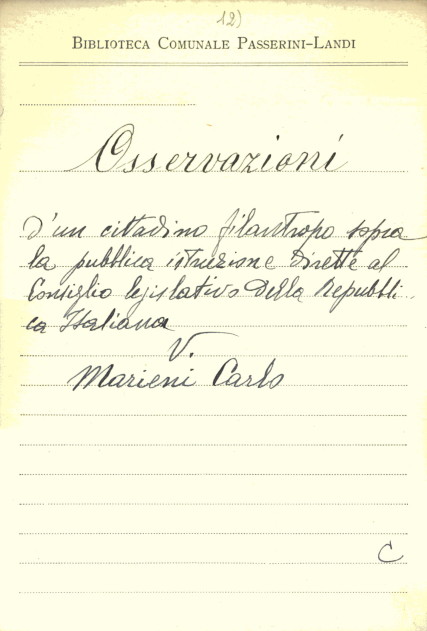 12)
BIBLIOTECA COMUNALE PASSERINI-LANDI
Osservazioni
D'un cittadino filantropo sopra
la pubblica istruzione dirette al
Consiglio legislativo della Repubbli-
ca Italiana
V.
Marieni Carlo
C